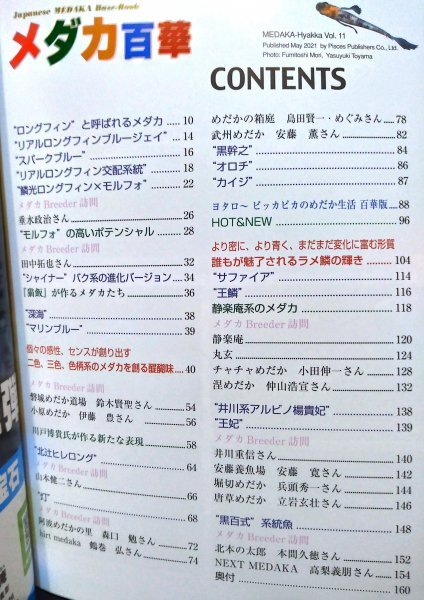 Japanese MEDAKA Hana-Book
メダカ百華
MEDAKA-Hyakka Vol. 11
Published May 2021 by Pisces Publishers Co., Ltd.
Photo: Fumitoshi Mori, Yasuyuki Toyama
CONTENTS
"ロングフィン"と呼ばれるメダカ 10
"リアルロングフィンブルージェイ" 14
"スパークブルー" 16
"リアルロングフィン交配系統" 18
"鱗光ロングフィン×モルフォ" 22
メダカBreeder 訪問
垂水政治さん 26
"モルフォ"の高いポテンシャル 28
メダカBreeder 訪問
田中拓也さん 32
"シャイナー"バク系の進化バージョン 34
『猫飯』が作るメダカたち 36
"深海" 38
"マリンブルー" 39
個々の感性、センスが創り出す
二色、三色、色柄系のメダカを創る醍醐味 40
メダカBreeder 訪問
磐城めだか道場 鈴木賢聖さん 54
小原めだか 伊藤 豊さん 56
川戸博貴氏が作る新たな表現 58
"北辻ヒレロング" 64
メダカBreeder 訪問
山本健二さん 66
"灯" 68
メダカBreeder 訪問
阿波めだかの里 森口 勉さん 72
hirt medaka 鶴巻 弘さん 74
めだかの箱庭 島田賢一・めぐみさん 78
武州めだか 安藤 薫さん 82
"黒幹之" 84
"オロチ" 86
"カイジ" 87
ヨタロ〜 ピッカピカのめだか生活 百華版 88
HOT&NEW 96
より密に、より青く、まだまだ変化に富む形質
誰もが魅了されるラメ鱗の輝き 104
"サファイア" 114
"王鱗" 116
静楽庵系のメダカ 118
メダカBreeder 訪問
静楽庵 120
丸玄 124
チャチャめだか 小田伸一さん 128
涅めだか 仲山浩宣さん 132
"井川系アルビノ楊貴妃" 138
"王妃" 139
メダカBreeder 訪問
井川重信さん 140
安藤養魚場 安藤 寛さん 142
堀切めだか 兵頭秀一さん 144
唐草めだか 立岩玄壮さん 146
"黒百式"系統魚 148
メダカBreeder 訪問
北本の太郎 本間久徳さん 152
NEXT MEDAKA 高梨義朋さん 154
奥付 160